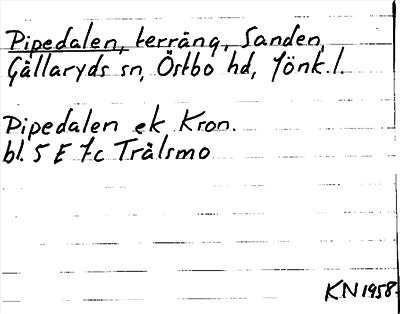 Pipedalen, terräng, Sanden,
Gällaryds sn, Östbo hd, Jönk.l.
Pipedalen ek Kron.
bl. 5 E 7c Trälsmo
KN 1958.